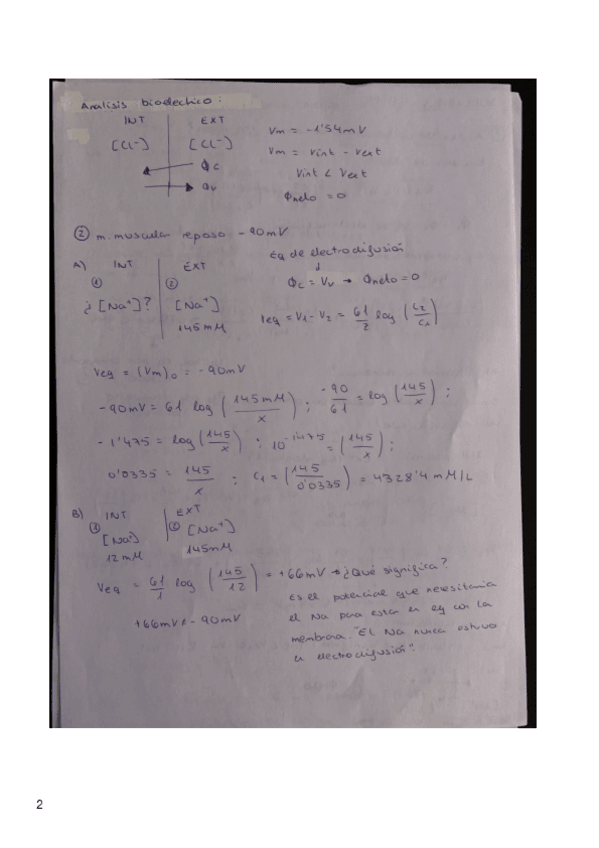 Analisis bioelectrico:
INT EXT
[Cl⁻] [Cl⁻]
Φc
Φv
Vm = -1'54mV
Vm = Vint - Vext
Vint < Vext
Φneto = 0
② m. muscular reposo -90mV
Eq de electrodifusión
A) INT EXT
① ②
¿[Na⁺]? [Na⁺]
145mM
Φc = Vv → Φneto = 0
Veq = V1 - V2 = 61/z log (C2/C1)
Veq = (Vm)o = -90mV
-90mV = 61 log (145mM/x) ; -90/61 = log (145/x) ;
-1'475 = log (145/x) ; 10^-1'475 = (145/x) ;
0'0335 = 145/x ; C1 = (145/0'0335) = 4328'4 mM/L
B) INT EXT
① ② [Na⁺]
[Na⁺] 145mM
12mM
Veq = 61/1 log (145/12) = +66mV → ¿Qué significa?
Es el potencial que necesitaria
el Na para estar en eq con la
membrana. "El Na nunca estuvo
en electrodifusión".
+66mV ≠ -90mV
2